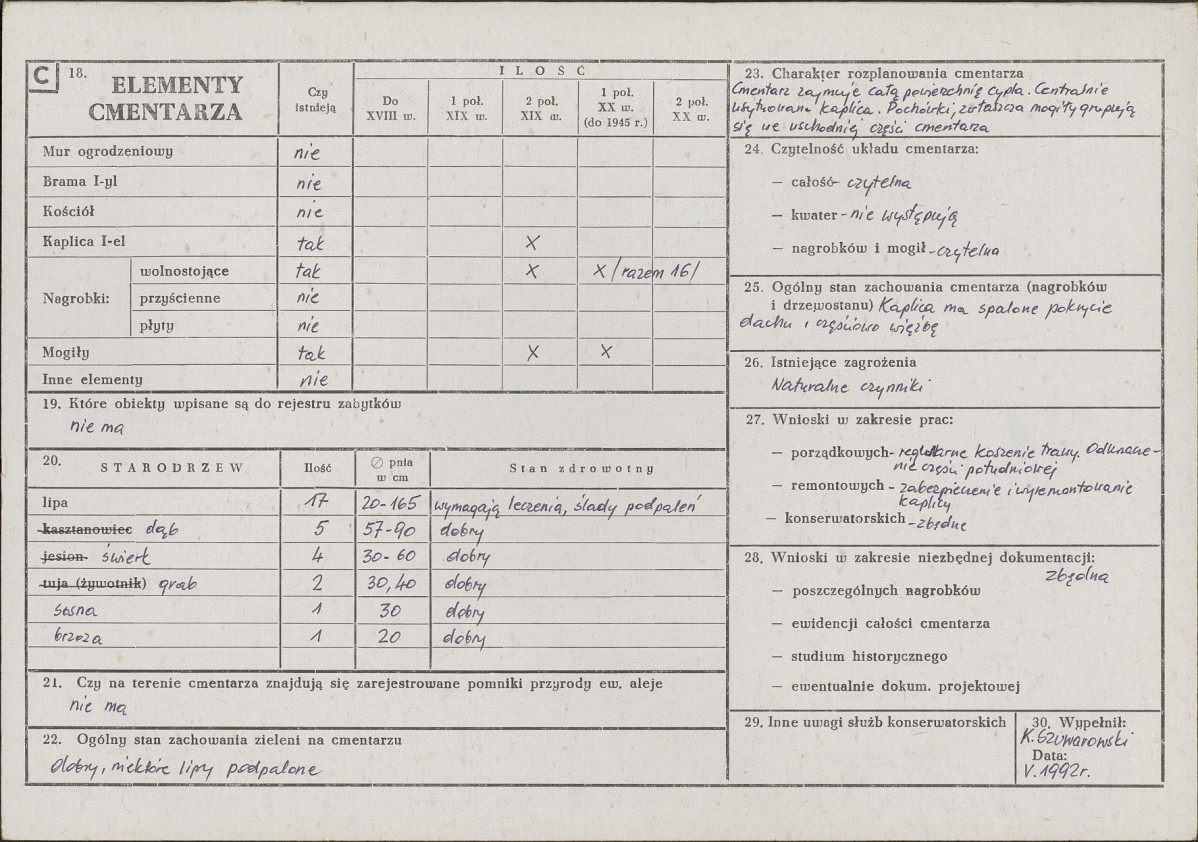 C 18. ELEMENTY CMENTARZA
Czy istnieją
ILOŚĆ
Do XVIII w.
1 poł. XIX w.
2 poł. XIX w.
1 poł. XX w. (do 1945 r.)
2 poł. XX w.
Mur ogrodzeniowy nie
Brama I-yl nie
Kościół nie
Kaplica I-el tak X
Nagrobki: wolnostojące tak X X /razem 16/
przyścienne nie
płyty nie
Mogiły tak X X
Inne elementy nie
19. Które obiekty wpisane są do rejestru zabytków
nie ma
20. STARODRZEW Ilość ∅ pnia w cm Stan zdrowotny
lipa 17 20-165 wymagają leczenia, ślady podpaleń
kasztanowiec dąb 5 57-90 dobry
jesion świerk 4 30-60 dobry
tuja (żywotnik) grab 2 30,40 dobry
sosna 1 30 dobry
brzoza 1 20 dobry
21. Czy na terenie cmentarza znajdują się zarejestrowane pomniki przyrody ew. aleje
nie ma
22. Ogólny stan zachowania zieleni na cmentarzu
dobry, niektóre lipy podpalone
23. Charakter rozplanowania cmentarza
Cmentarz zajmuje całą powierzchnię cypla. Centralnie
usytuowana kaplica. Pochówki, zwłaszcza mogiły grupują
się we wschodniej części cmentarza
24. Czytelność układu cmentarza:
— całość- czytelna
— kwater - nie występują
— nagrobków i mogił - czytelna
25. Ogólny stan zachowania cmentarza (nagrobków
i drzewostanu) Kaplica ma spalone pokrycie
dachu i częściowo więźbę
26. Istniejące zagrożenia
Naturalne czynniki
27. Wnioski w zakresie prac:
— porządkowych- regularne koszenie trawy.
nie części południowej
— remontowych - zabezpieczenie i wyremontowanie
kaplicy
— konserwatorskich - zbędne
28. Wnioski w zakresie niezbędnej dokumentacji:
zbędna
— poszczególnych nagrobków
— ewidencji całości cmentarza
— studium historycznego
— ewentualnie dokum. projektowej
29. Inne uwagi służb konserwatorskich
30. Wypełnił:
K. Szuwarowski
Data:
V. 1992r.